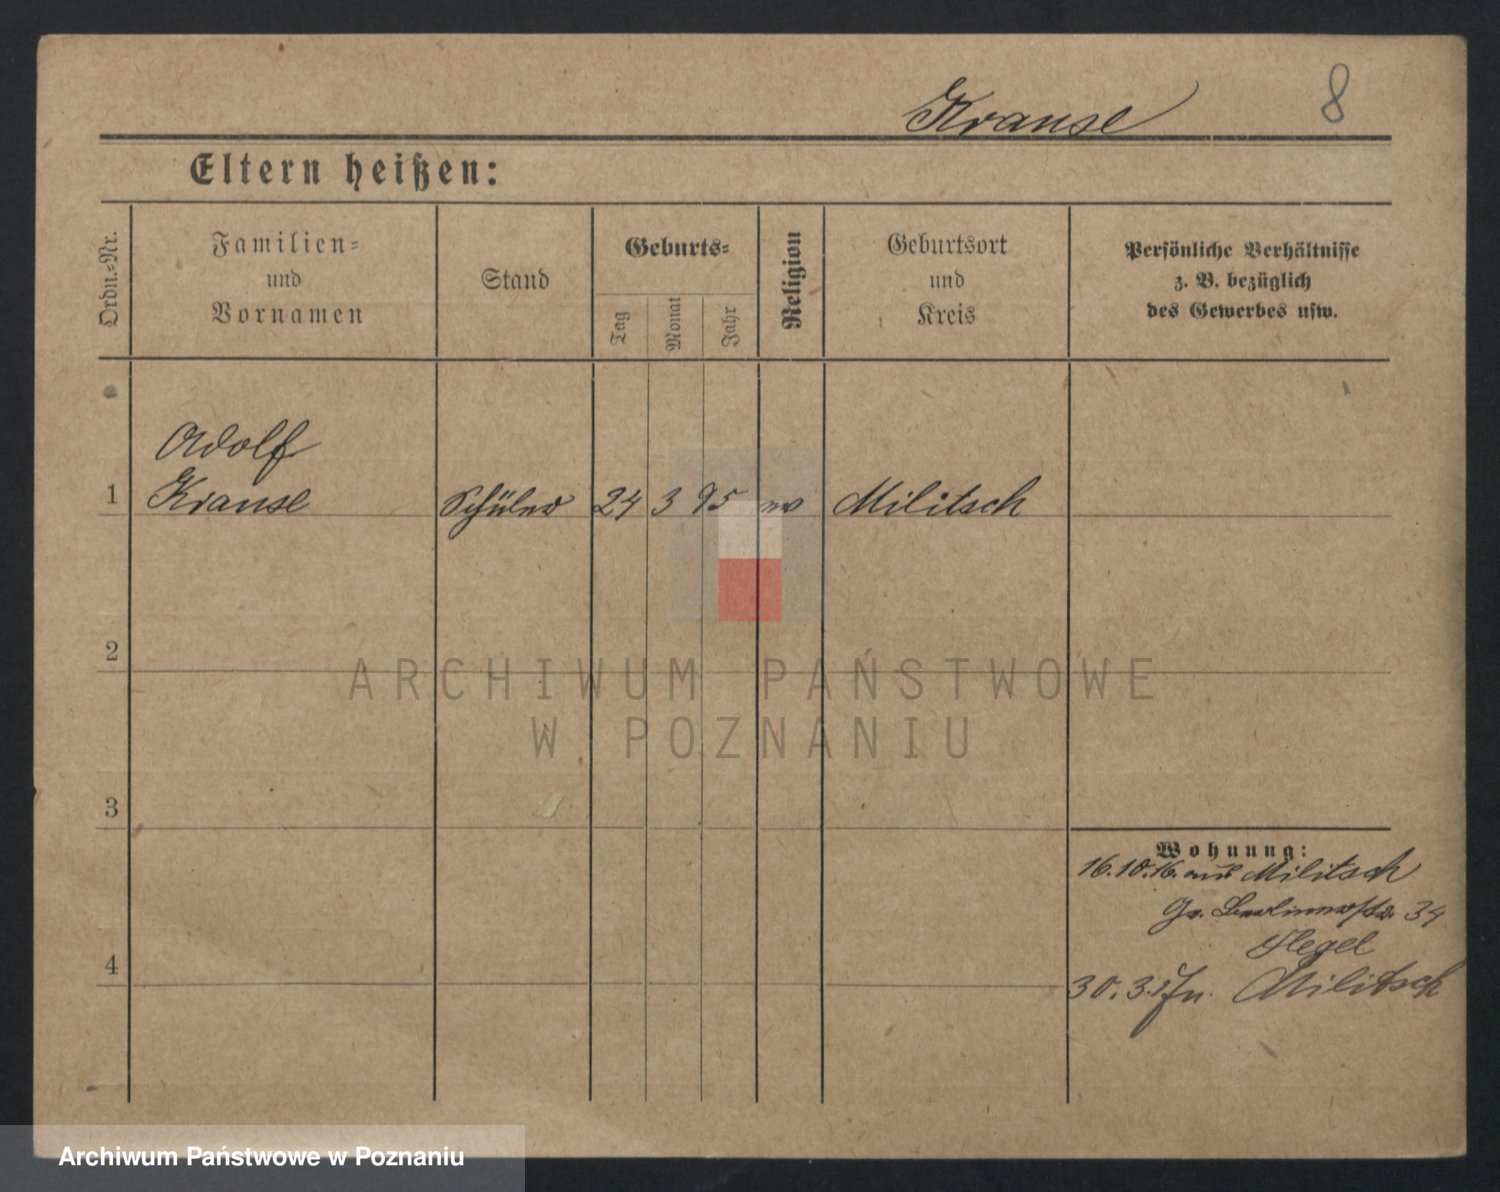 Krause
8
Eltern heißen:
Ordn.-Nr.
Familien-
und
Vornamen
Stand
Geburts-
Tag
Monat
Jahr
Religion
Geburtsort
und
Kreis
Persönliche Verhältnisse
z. B. bezüglich
des Gewerbes usw.
Adolf
1 Krause Schüler 24 3 95 ev Militsch
2
ARCHIWUM PAŃSTWOWE
W POZNANIU
3
Wohnung:
16.10.16. aus Militsch
Gr. Berlinerstr. 34
4
30.3.17 n. Militsch
Archiwum Państwowe w Poznaniu